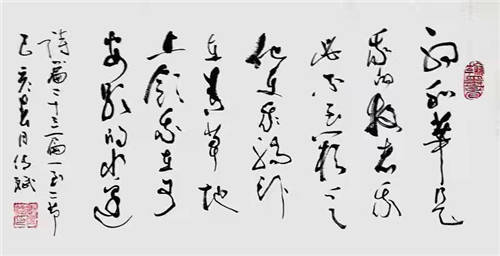 耶和華是
我的牧者我
必不至缺乏
他使我躺卧
在青草地
上領我在可
安歇的水邊
詩篇二十三篇一至二節
己亥春月